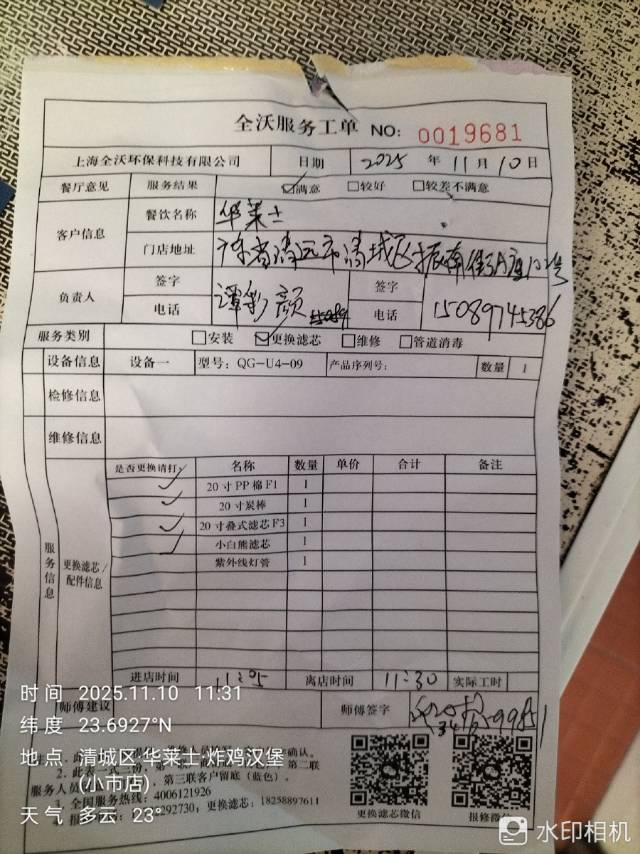 全沃服务工单 NO: 0019681
上海全沃环保科技有限公司 日期 2025 年 11 月 10 日
餐厅意见 服务结果 ☑满意 □较好 □较差不满意
客户信息 餐饮名称 华莱士
门店地址 清远市清城区振南
负责人 签字 谭彩颜 签字
电话 电话 15089745386
服务类别 □安装 ☑更换滤芯 □维修 □管道消毒
设备信息 设备一 型号: QG-U4-09 产品序列号: 数量 1
检修信息
维修信息
服务信息 更换滤芯/配件信息
是否更换请打✓ 名称 数量 单价 合计 备注
✓ 20寸PP棉F1 1
✓ 20寸炭棒 1
✓ 20寸叠式滤芯F3 1
✓ 小白熊滤芯 1
紫外线灯管 1
进店时间 11:05 离店时间 11:30 实际工时
师傅建议 师傅签字
时间 2025.11.10 11:31
纬度 23.6927°N
地点 清城区·华莱士·炸鸡汉堡
(小市店)
天气 多云 23°
确认。
第二联
服务人员 第三联客户留底（蓝色）。
3、全国服务热线: 4006121926
292730; 更换滤芯: 18258897611
更换滤芯微信 报修微信
水印相机